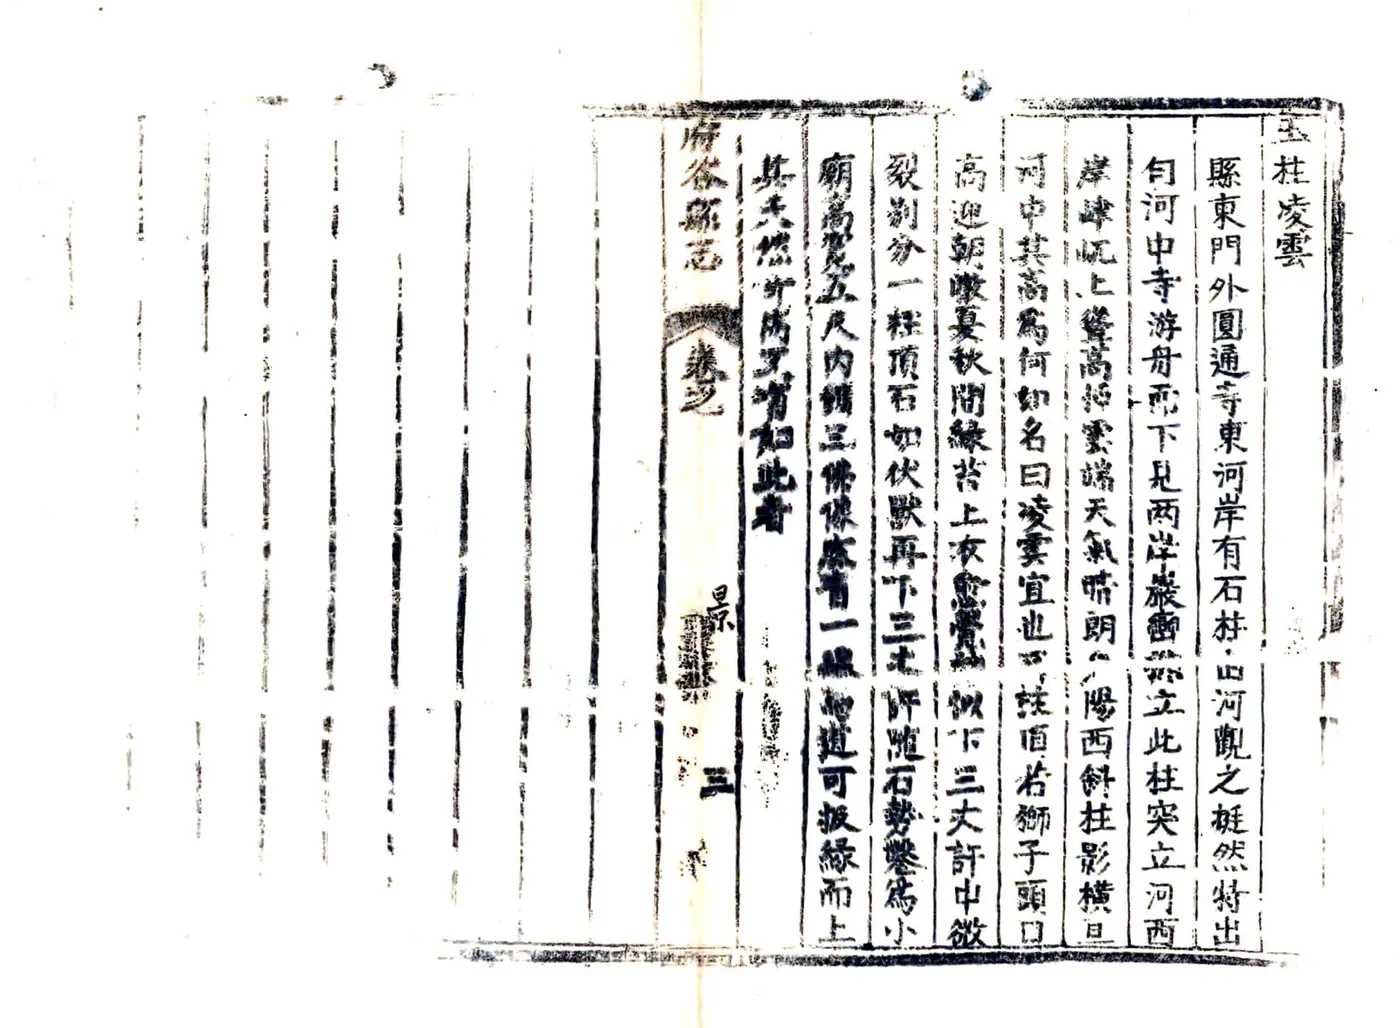 玉柱凌雲
縣東門外圓通寺東河岸有石柱山河觀之挺然特出
自河中寺游舟而下見两岸巖立此柱突立河西
岸嵂屼上聳高揷雲端天氣晴朗夕陽西斜柱影橫亘
河中其高爲何如名曰凌雲宜也柱頂若獅子頭口
高迎朝暾夏秋間綠苔上衣似下三丈許中微
裂別分一柱頂石如伏獸再下三丈許隨石勢鑿爲小
廟高寬五尺内鐫三佛像一線道可扳緣而上
其天然奇如此者
府谷縣志
卷之
景
三